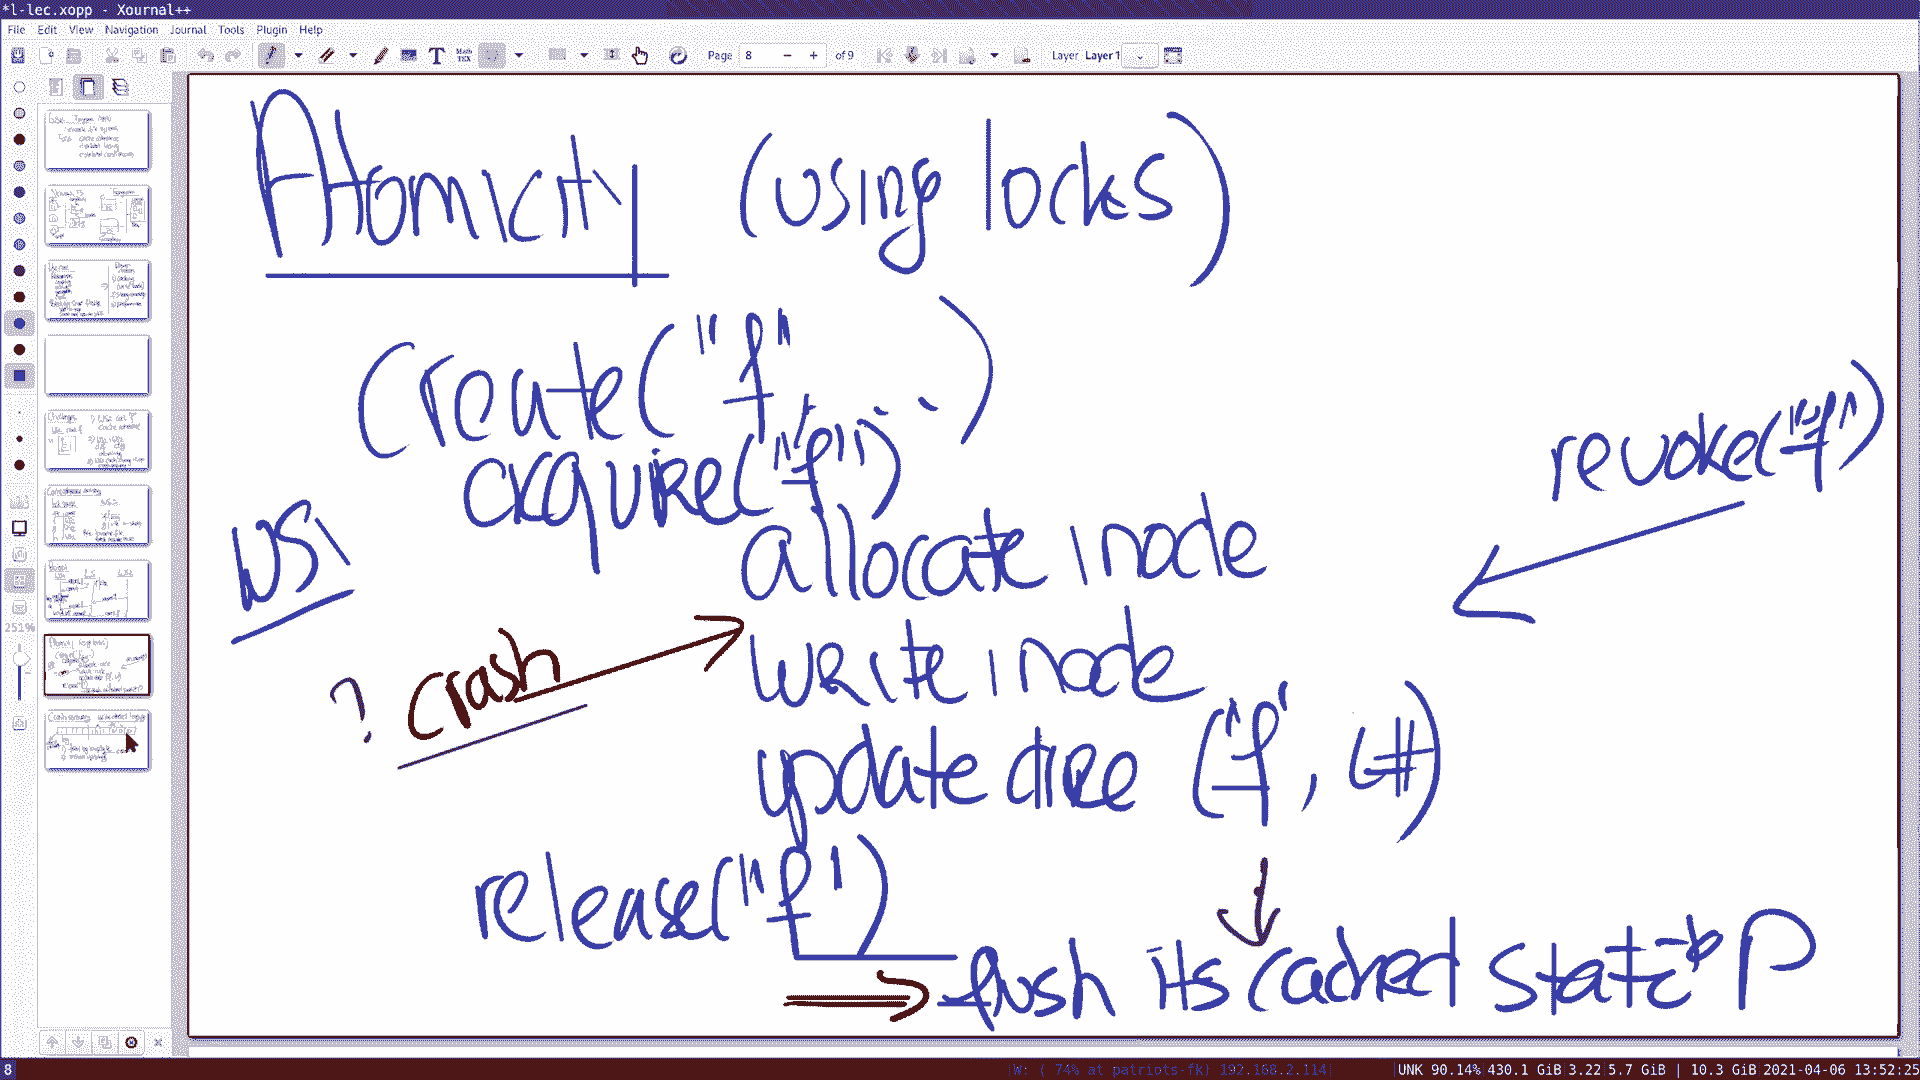 *l-lec.xopp - Xournal++
File Edit View Navigation Journal Tools Plugin Help
Page 8 - + of 9 Layer Layer 1
251%
Atomicity (using locks)
create("f", ...)
acquire("f")
revoke("f")
WS1
allocate inode
? crash
write inode
update dire ("f", i#)
release("f")
flush its cached state to P
8
W: ( 74% at patriots-fk) 192.168.2.114| |UNK 90.14% 430.1 GiB 3.22 5.7 GiB | 10.3 GiB 2021-04-06 13:52:25